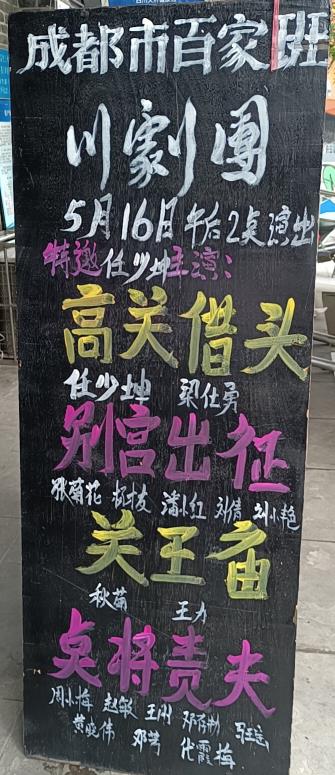 成都市百家班
川劇團
5月16日午后2点演出
特邀任少坤主演：
高关借头
任少坤 梁仕勇
别宫出征
张菊花 杨枝 潘小红 刘倩 刘小艳
关王庙
秋菊 王力
点将责夫
周小梅 赵敏 王刚
黄晓伟 邓芳 代霞梅